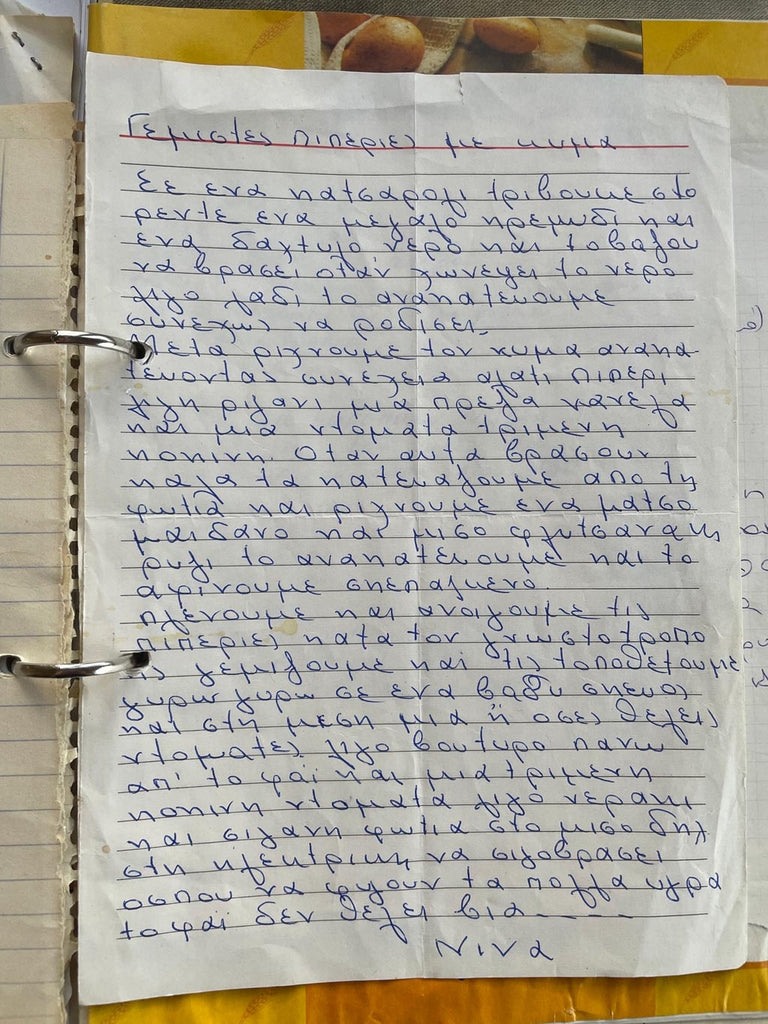 Γεμιστες πιπεριες με κυμα
Σε ενα κατσαρολι τριβουμε στο
ρεντε ενα μεγαλο κρεμυδι και
ενα δαχτυλο νερο και το βαζου
να βρασει οταν χωνεψει το νερο
λιγο λαδι το ανακατευουμε
συνεχως να ροδισει.
Μετα ριχνουμε τον κυμα ανακα
τευοντας συνεχεια αλατι πιπερι
λιγη ριγανι μια πρεζα κανελα
και μια ντοματα τριμενη
κοκινη. Οταν αυτα βρασουν
καλα τα κατεβαζουμε απο τη
φωτια και ριχνουμε ενα ματσο
μαιδανο και μισο φλυτσανακι
ρυζι το ανακατευουμε και το
αφινουμε σκεπασμενο
πλενουμε και ανοιγουμε τις
πιπεριες κατα τον γνωστο τροπο
τις γεμιζουμε και τις τοποθετουμε
γυρω γυρω σε ενα βαθυ σκευος
και στη μεση μια ή οσες θελεις
ντοματες λιγο βουτυρο πανω
απ' το φαϊ και μια τριμενη
κοκινη ντοματα λιγο νερακι
και σιγανη φωτια στο μισο δηλ
στη ηλεκτρικη να σιγοβρασει
οσπου να φυγουν τα πολλα υγρα
το φαϊ δεν θελει βια----
Νινα